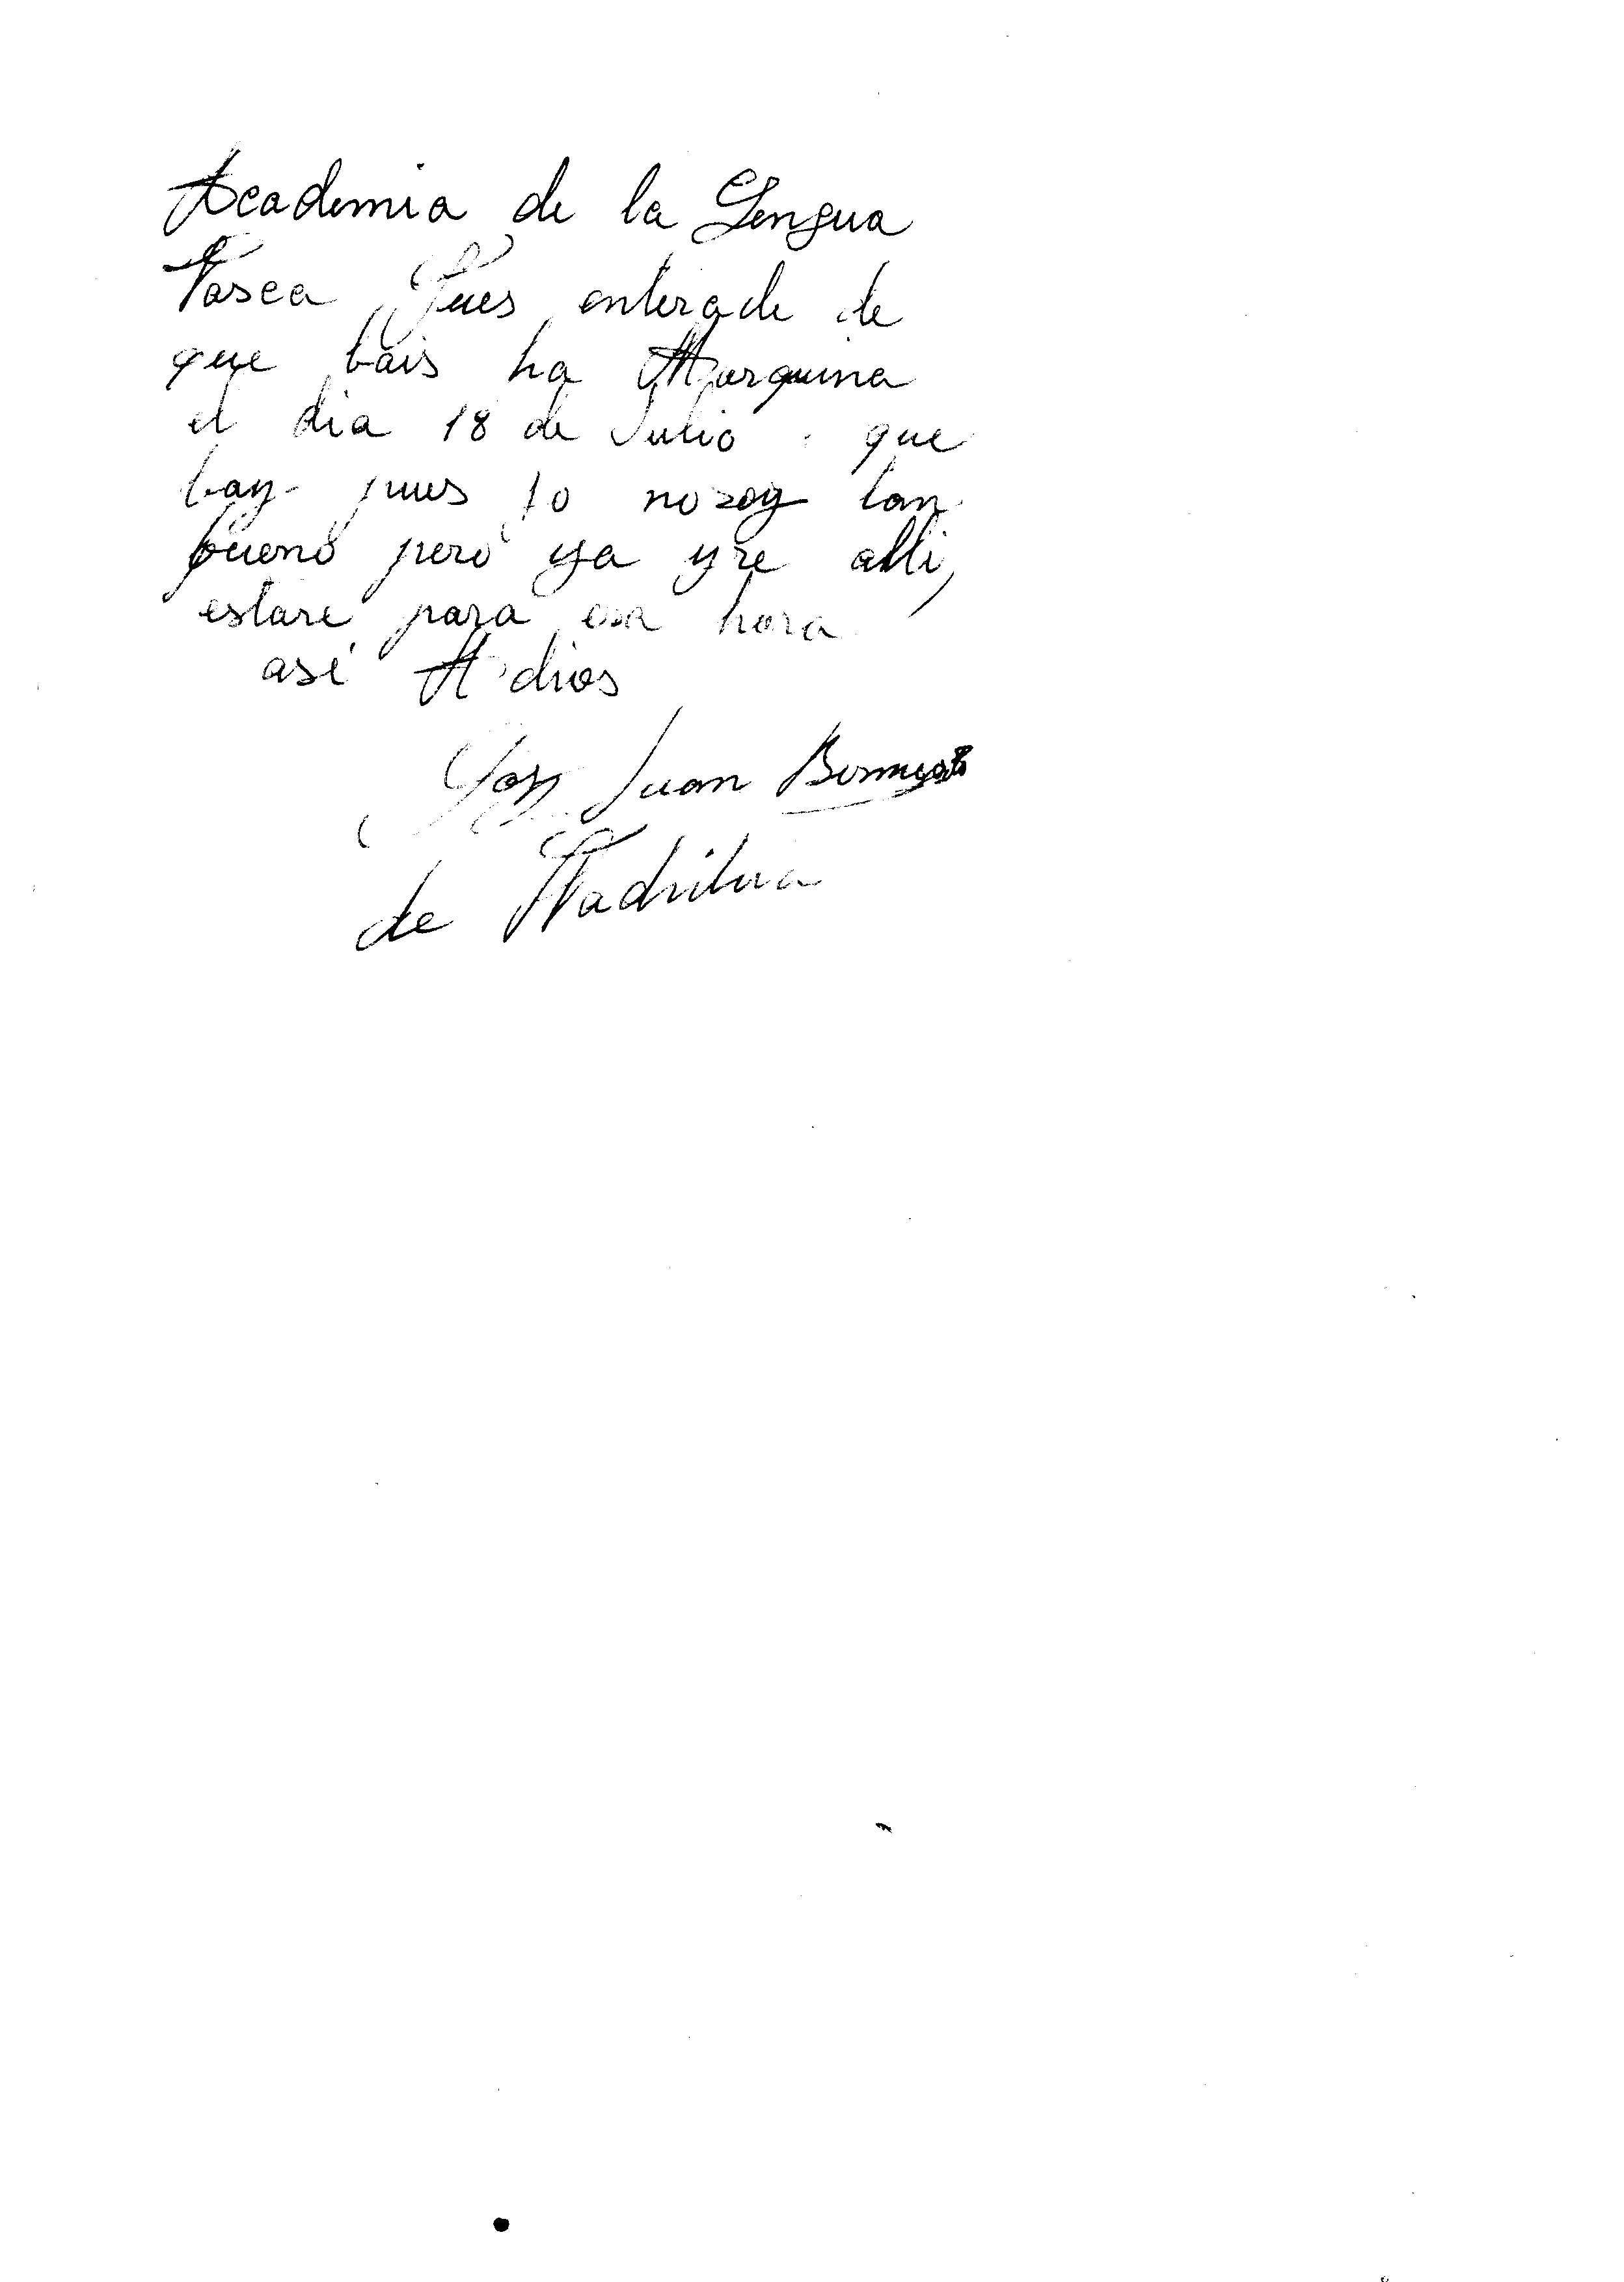 Academia de la Lengua
Vasca Pues enterado de
que bais ha Marquina
el dia 18 de Julio que
bay pues Yo no soy tan
bueno pero ya yre alli,
estare para esa hora
asi A dios
Juan
de